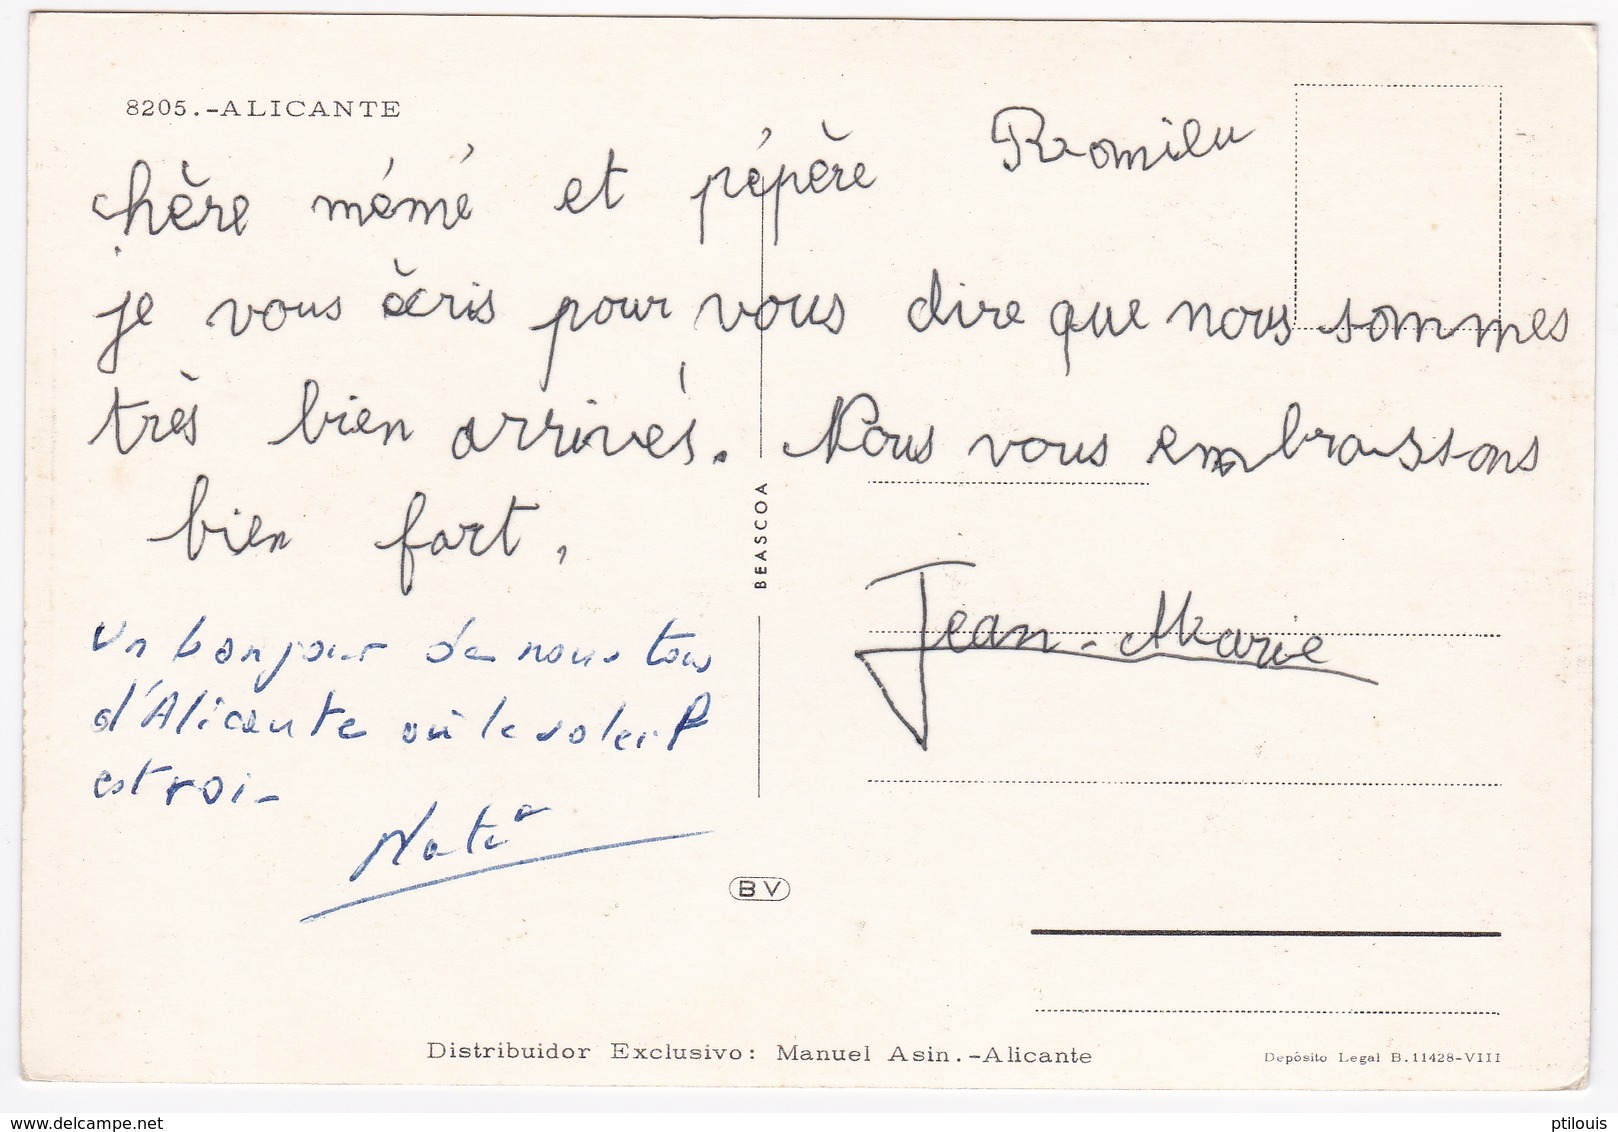 8205.-ALICANTE
chère mémé et pépère Romilu
je vous ècris pour vous dire que nous sommes
très bien arrivés. Nous vous embrassons
bien fort,
BEASCOA
Jean-Marie
Un bonjour de nous tous
d'Alicante où le soleil
est roi-
BV
Distribuidor Exclusivo: Manuel Asin.-Alicante
Depósito Legal B.11428-VIII
delcampe.net
ptilouis